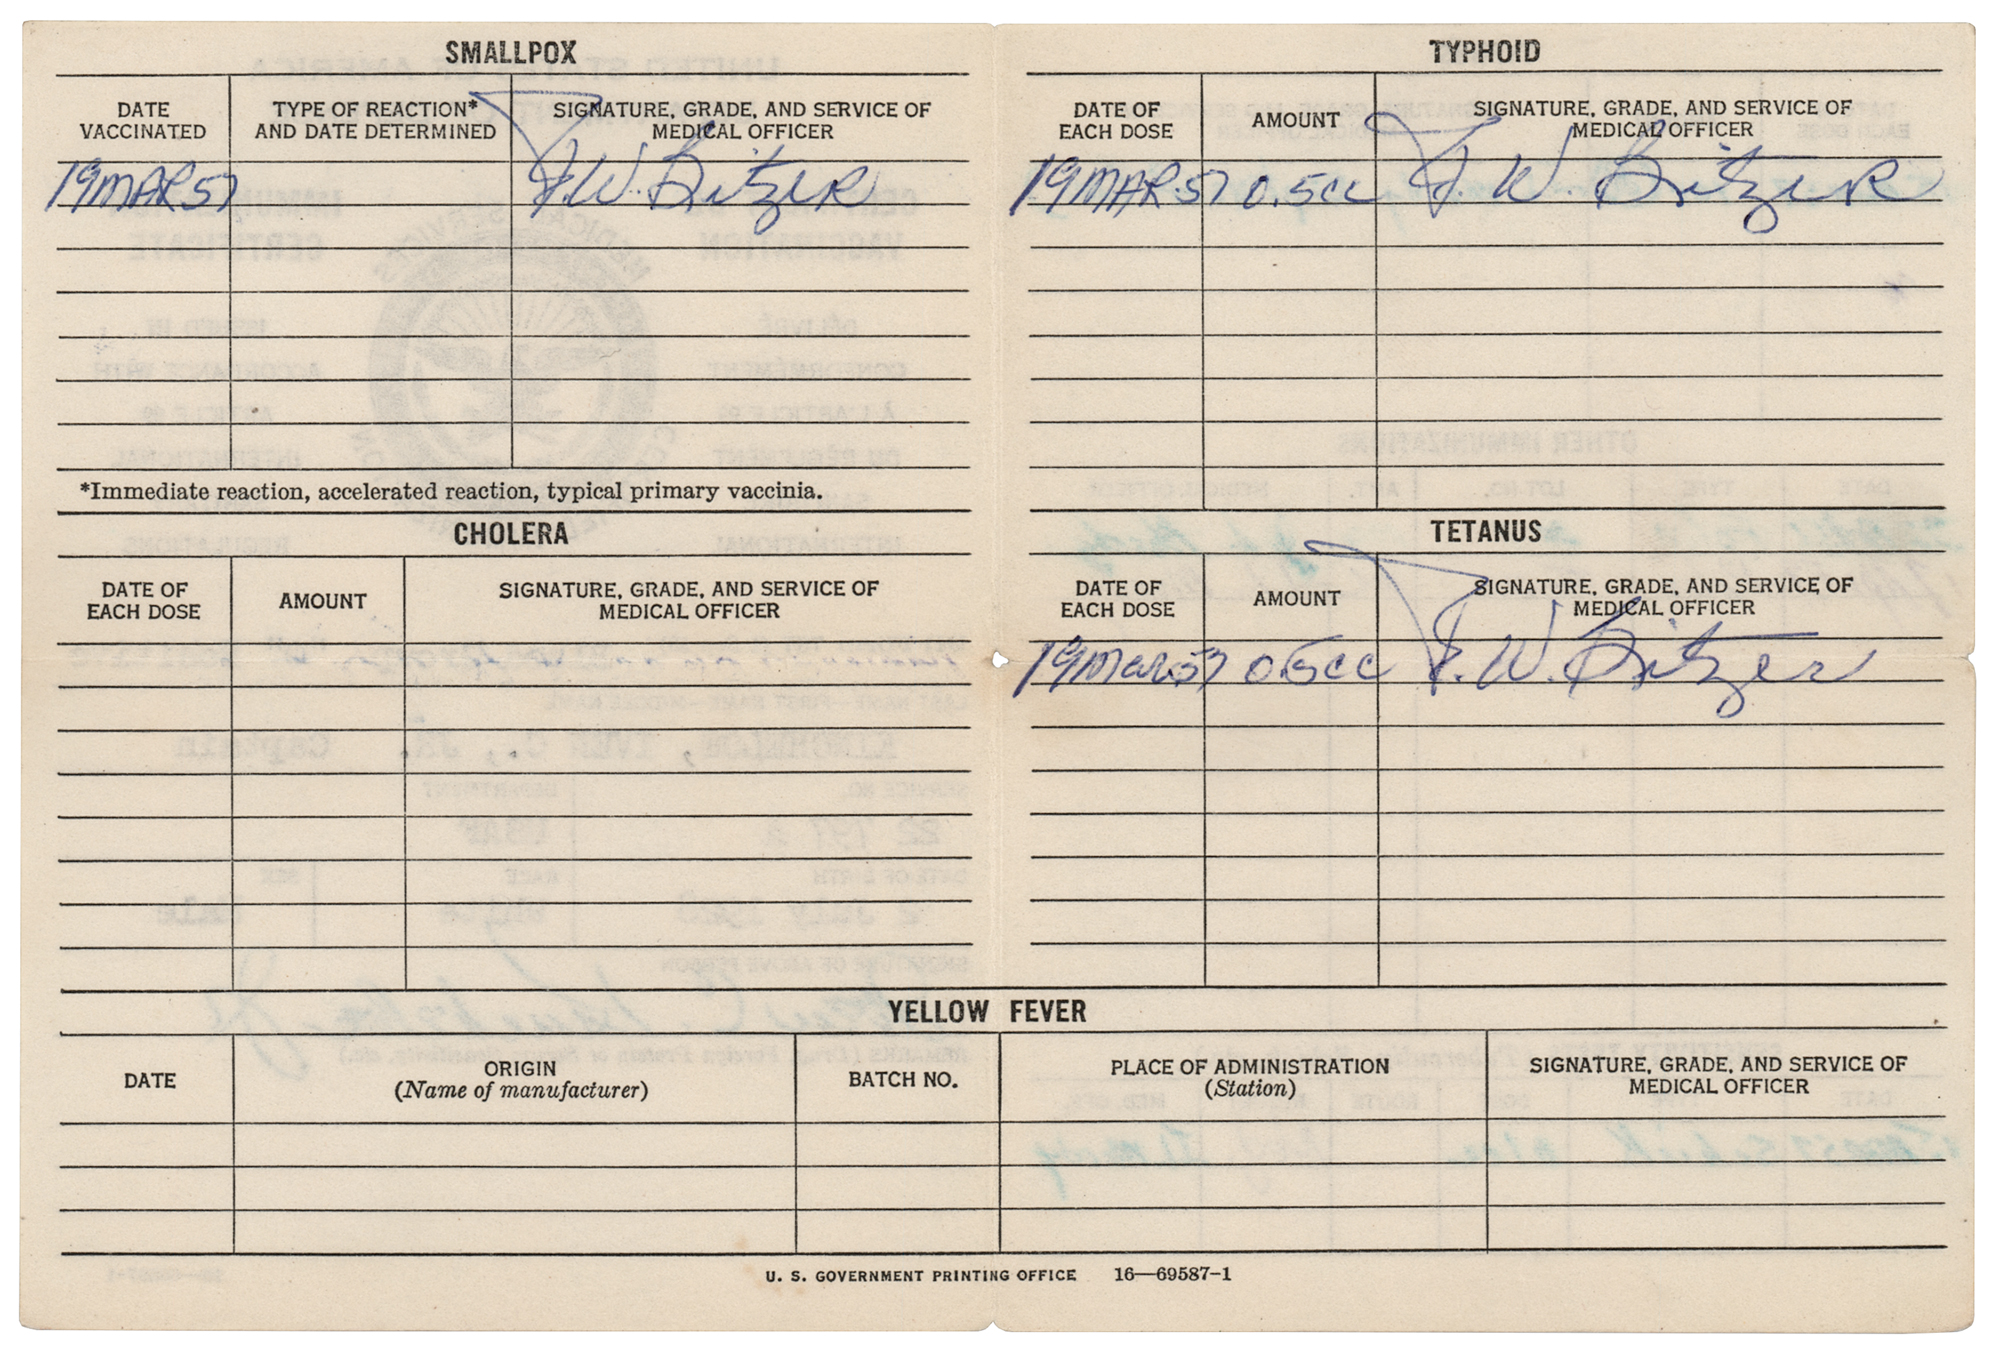 SMALLPOX
DATE VACCINATED
TYPE OF REACTION* AND DATE DETERMINED
SIGNATURE, GRADE, AND SERVICE OF MEDICAL OFFICER
19 MAR 57 F. W. Bitzer
*Immediate reaction, accelerated reaction, typical primary vaccinia.
TYPHOID
DATE OF EACH DOSE
AMOUNT
SIGNATURE, GRADE, AND SERVICE OF MEDICAL OFFICER
19 MAR 57 0.5cc F. W. Bitzer
CHOLERA
DATE OF EACH DOSE
AMOUNT
SIGNATURE, GRADE, AND SERVICE OF MEDICAL OFFICER
TETANUS
DATE OF EACH DOSE
AMOUNT
SIGNATURE, GRADE, AND SERVICE OF MEDICAL OFFICER
19 Mar 57 0.5cc F. W. Bitzer
YELLOW FEVER
DATE
ORIGIN
(Name of manufacturer)
BATCH NO.
PLACE OF ADMINISTRATION
(Station)
SIGNATURE, GRADE, AND SERVICE OF MEDICAL OFFICER
U. S. GOVERNMENT PRINTING OFFICE 16—69587-1